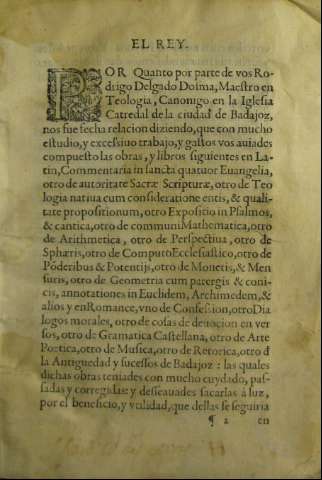 EL REY.
POR Quanto por parte de vos Ro
drigo Delgado Dosma, Maestro en
Teologia, Canonigo en la Iglesia
Catredal de la ciudad de Badajoz,
nos fue fecha relacion diziendo, que con mucho
estudio, y excessiuo trabajo, y gastos vos auiades
compuesto las obras, y libros siguientes en La-
tin, Commentaria in sancta quatuor Euangelia,
otro de autoritate Sacræ Scripturæ, otro de Teo
logia natiua cum consideratione entis, & quali-
tate propositionum, otro Expositio in Psalmos,
& cantica, otro de communi Mathematica, otro
de Arithmetica, otro de Perspectiua, otro de
Sphæris, otro de Computo Ecclesiastico, otro de
Põderibus & Potentijs, otro de Monetis, & Men
suris, otro de Geometria cum parergis & coni-
cis, annotationes in Euclidem, Archimedem, &
alios y en Romance, vno de Confession, otro Dia
logos morales, otro de cosas de deuocion en ver
sos, otro de Gramatica Castellana, otro de Arte
Poetica, otro de Musica, otro de Retorica, otro d
la Antiguedad y sucessos de Badajoz: las quales
dichas obras teniades con mucho cuydado, pas-
sadas y corregidas: y desseauades sacarlas à luz,
por el beneficio, y vtilidad, que dellas se seguiria
¶ 2 en